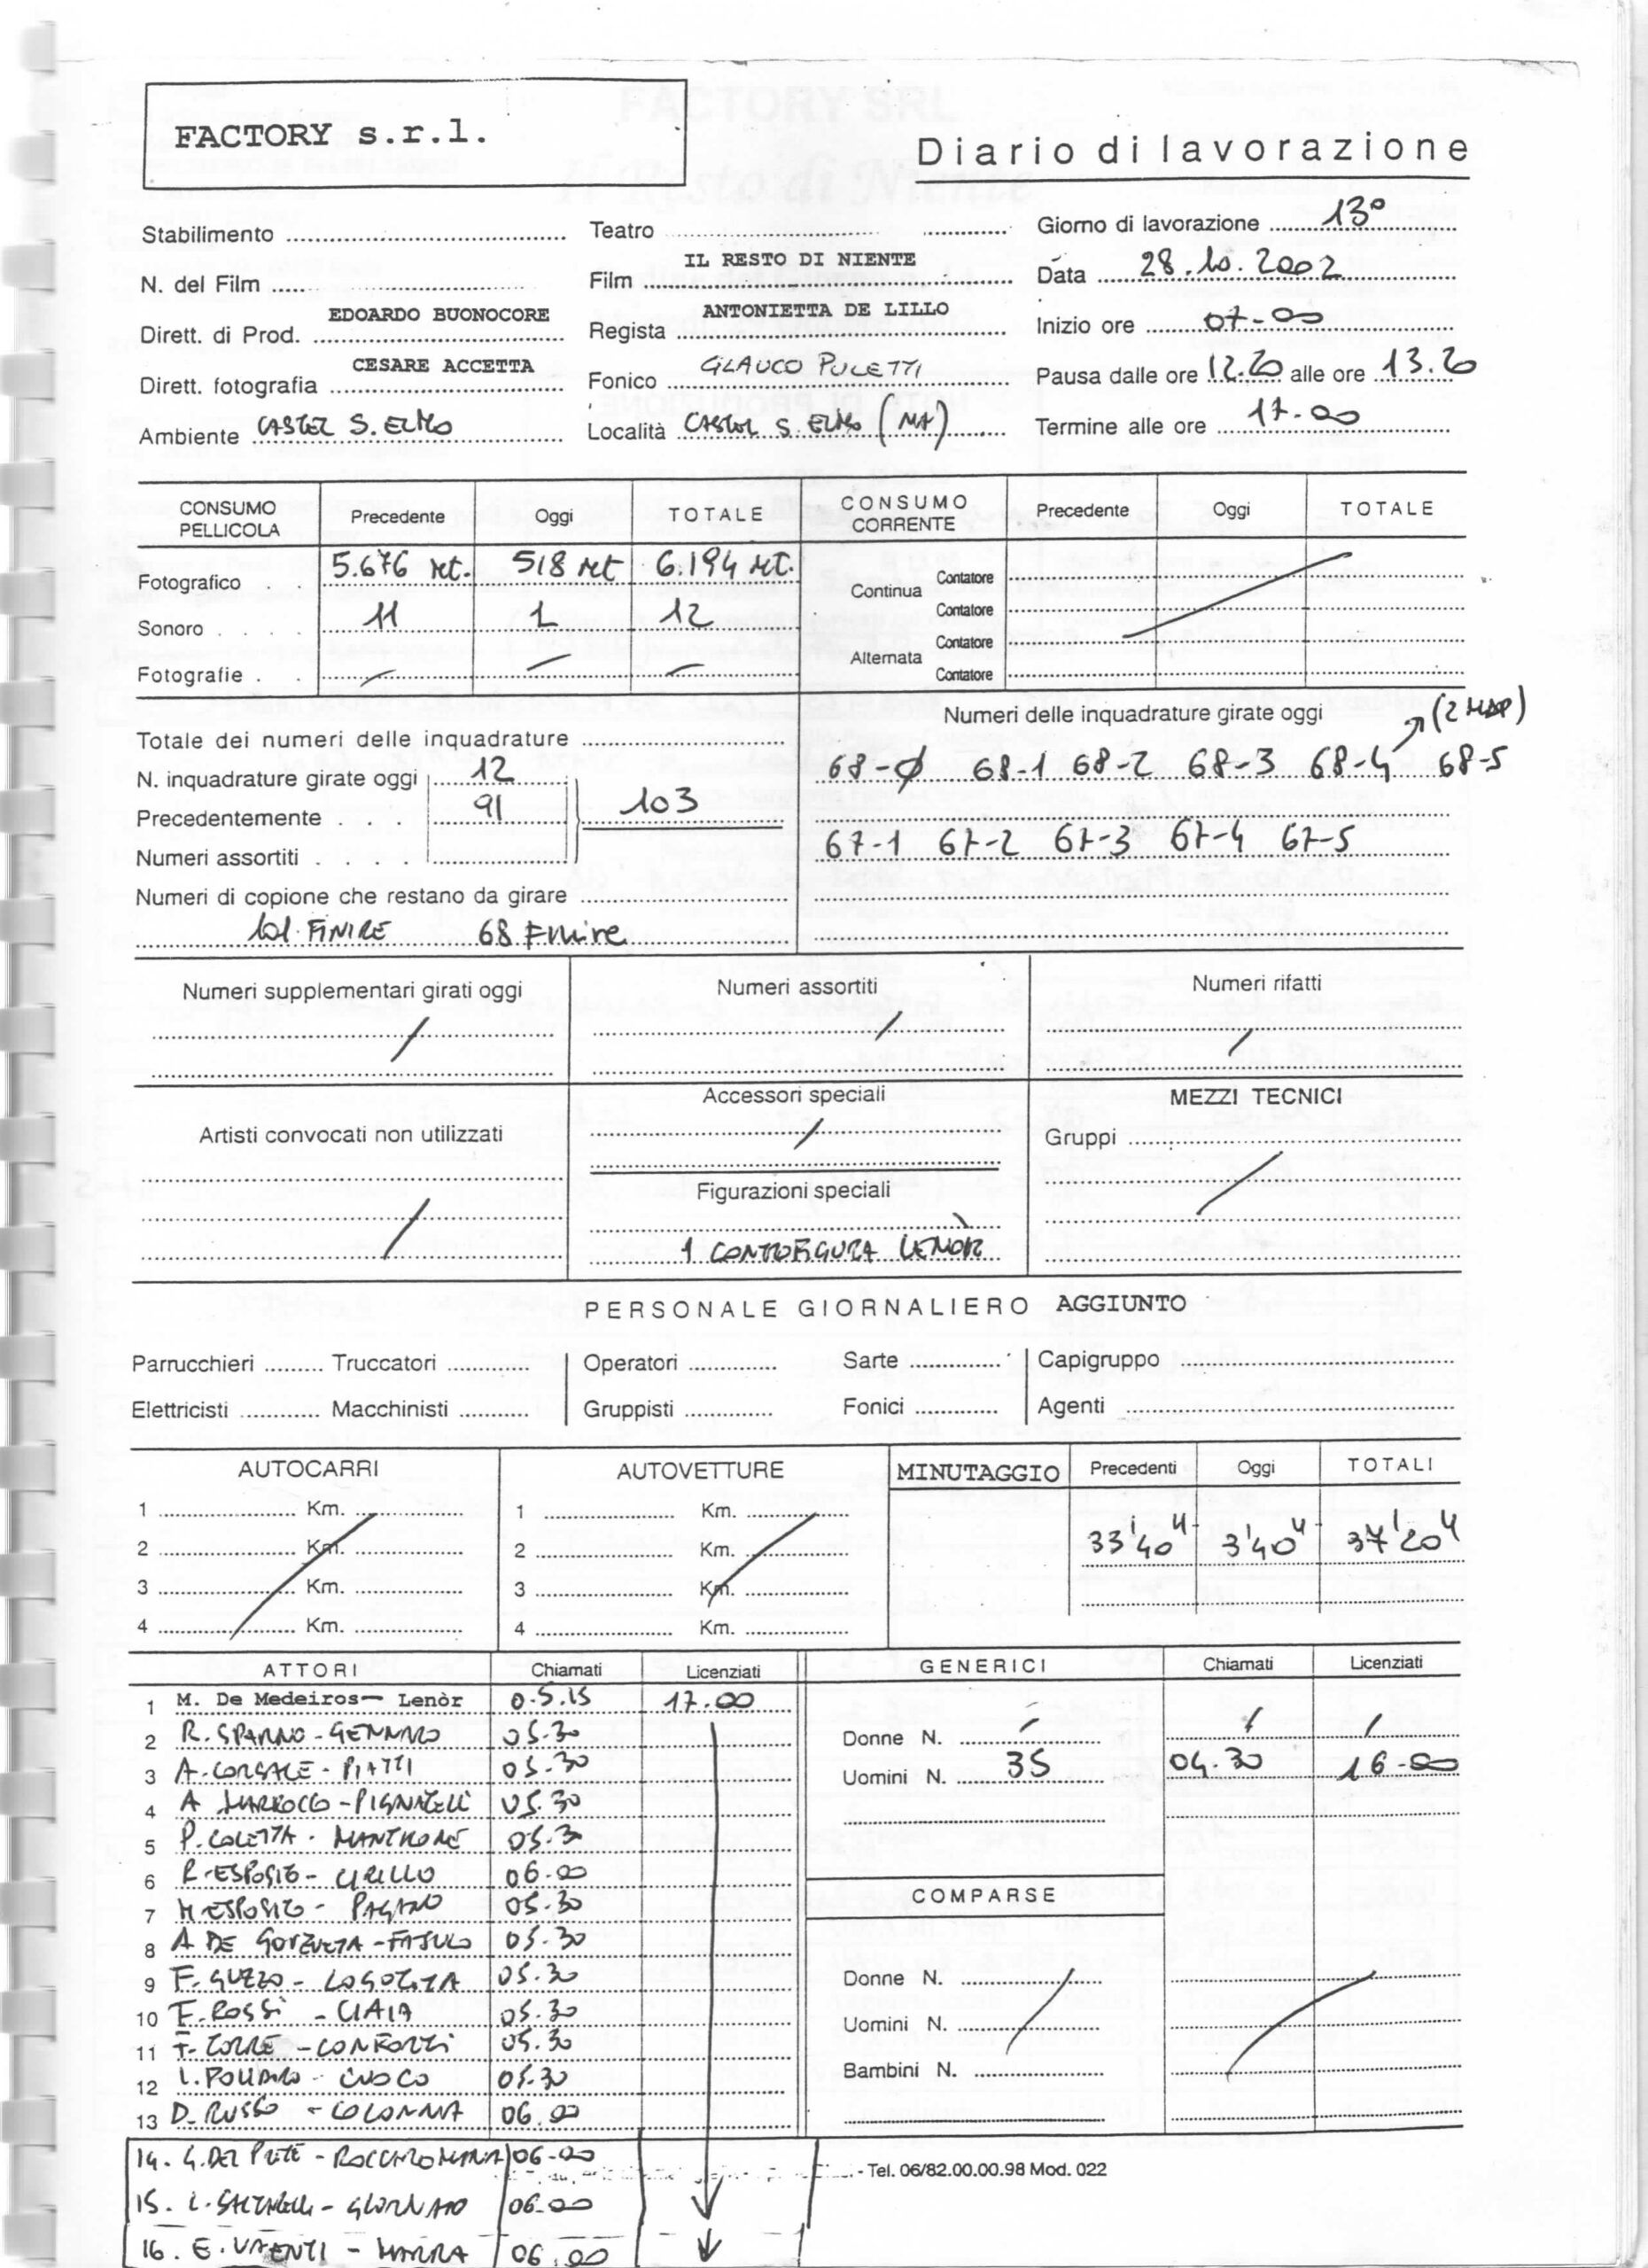 FACTORY s.r.l.
Diario di lavorazione
Stabilimento
Teatro
Giorno di lavorazione 13°
N. del Film
Film IL RESTO DI NIENTE
Data 28.10.2002
Dirett. di Prod. EDOARDO BUONOCORE
Regista ANTONIETTA DE LILLO
Inizio ore 07-00
Dirett. fotografia CESARE ACCETTA
Fonico GLAUCO PULETTI
Pausa dalle ore 12.20 alle ore 13.20
Ambiente CASTEL S. ELMO
Località CASTEL S. ELMO (NA)
Termine alle ore 17-00
CONSUMO PELLICOLA Precedente Oggi TOTALE
Fotografico 5.676 Mt. 518 Mt 6.194 Mt.
Sonoro 11 1 12
Fotografie
CONSUMO CORRENTE Precedente Oggi TOTALE
Continua Contatore
Contatore
Alternata Contatore
Contatore
Totale dei numeri delle inquadrature
N. inquadrature girate oggi 12
Precedentemente 91 103
Numeri assortiti
Numeri di copione che restano da girare
101 FINIRE 68 Finire
Numeri delle inquadrature girate oggi (2 MAP)
68-Ø 68-1 68-2 68-3 68-4 68-5
67-1 67-2 67-3 67-4 67-5
Numeri supplementari girati oggi
Numeri assortiti
Numeri rifatti
Artisti convocati non utilizzati
Accessori speciali
Figurazioni speciali
1 CONTROFIGURA LENÒR
MEZZI TECNICI
Gruppi
PERSONALE GIORNALIERO AGGIUNTO
Parrucchieri Truccatori Operatori Sarte Capigruppo
Elettricisti Macchinisti Gruppisti Fonici Agenti
AUTOCARRI
1 Km.
2 Km.
3 Km.
4 Km.
AUTOVETTURE
1 Km.
2 Km.
3 Km.
4 Km.
MINUTAGGIO Precedenti Oggi TOTALI
33'40" 3'40" 37'20"
ATTORI Chiamati Licenziati
1 M. De Medeiros- Lenòr 05.15 17.00
2 R. SPARNO - GENNARO 05.30
3 A. CORSALE - PIATTI 05.30
4 A MARROCCO - PIGNATELLI 05.30
5 P. COLETTA - MANTHONÉ 05.30
6 R. ESPOSITO - CIRILLO 06.00
7 M ESPOSITO - PAGANO 05.30
8 A DE - FASULO 05.30
9 F. GUZZO - LOGOTETA 05.30
10 F. ROSSI - CIAIA 05.30
11 F. TORRE - CONFORTI 05.30
12 L. - CUOCO 05.30
13 D. RUSSO - COLONNA 06.00
14. G. DEL PRETE - ROCCAROMANA 06-00
15. L. - 06-00
16. E. VALENTI - MARRA 06.00
GENERICI Chiamati Licenziati
Donne N.
Uomini N. 35 04.30 16-00
COMPARSE
Donne N.
Uomini N.
Bambini N.
- Tel. 06/82.00.00.98 Mod. 022